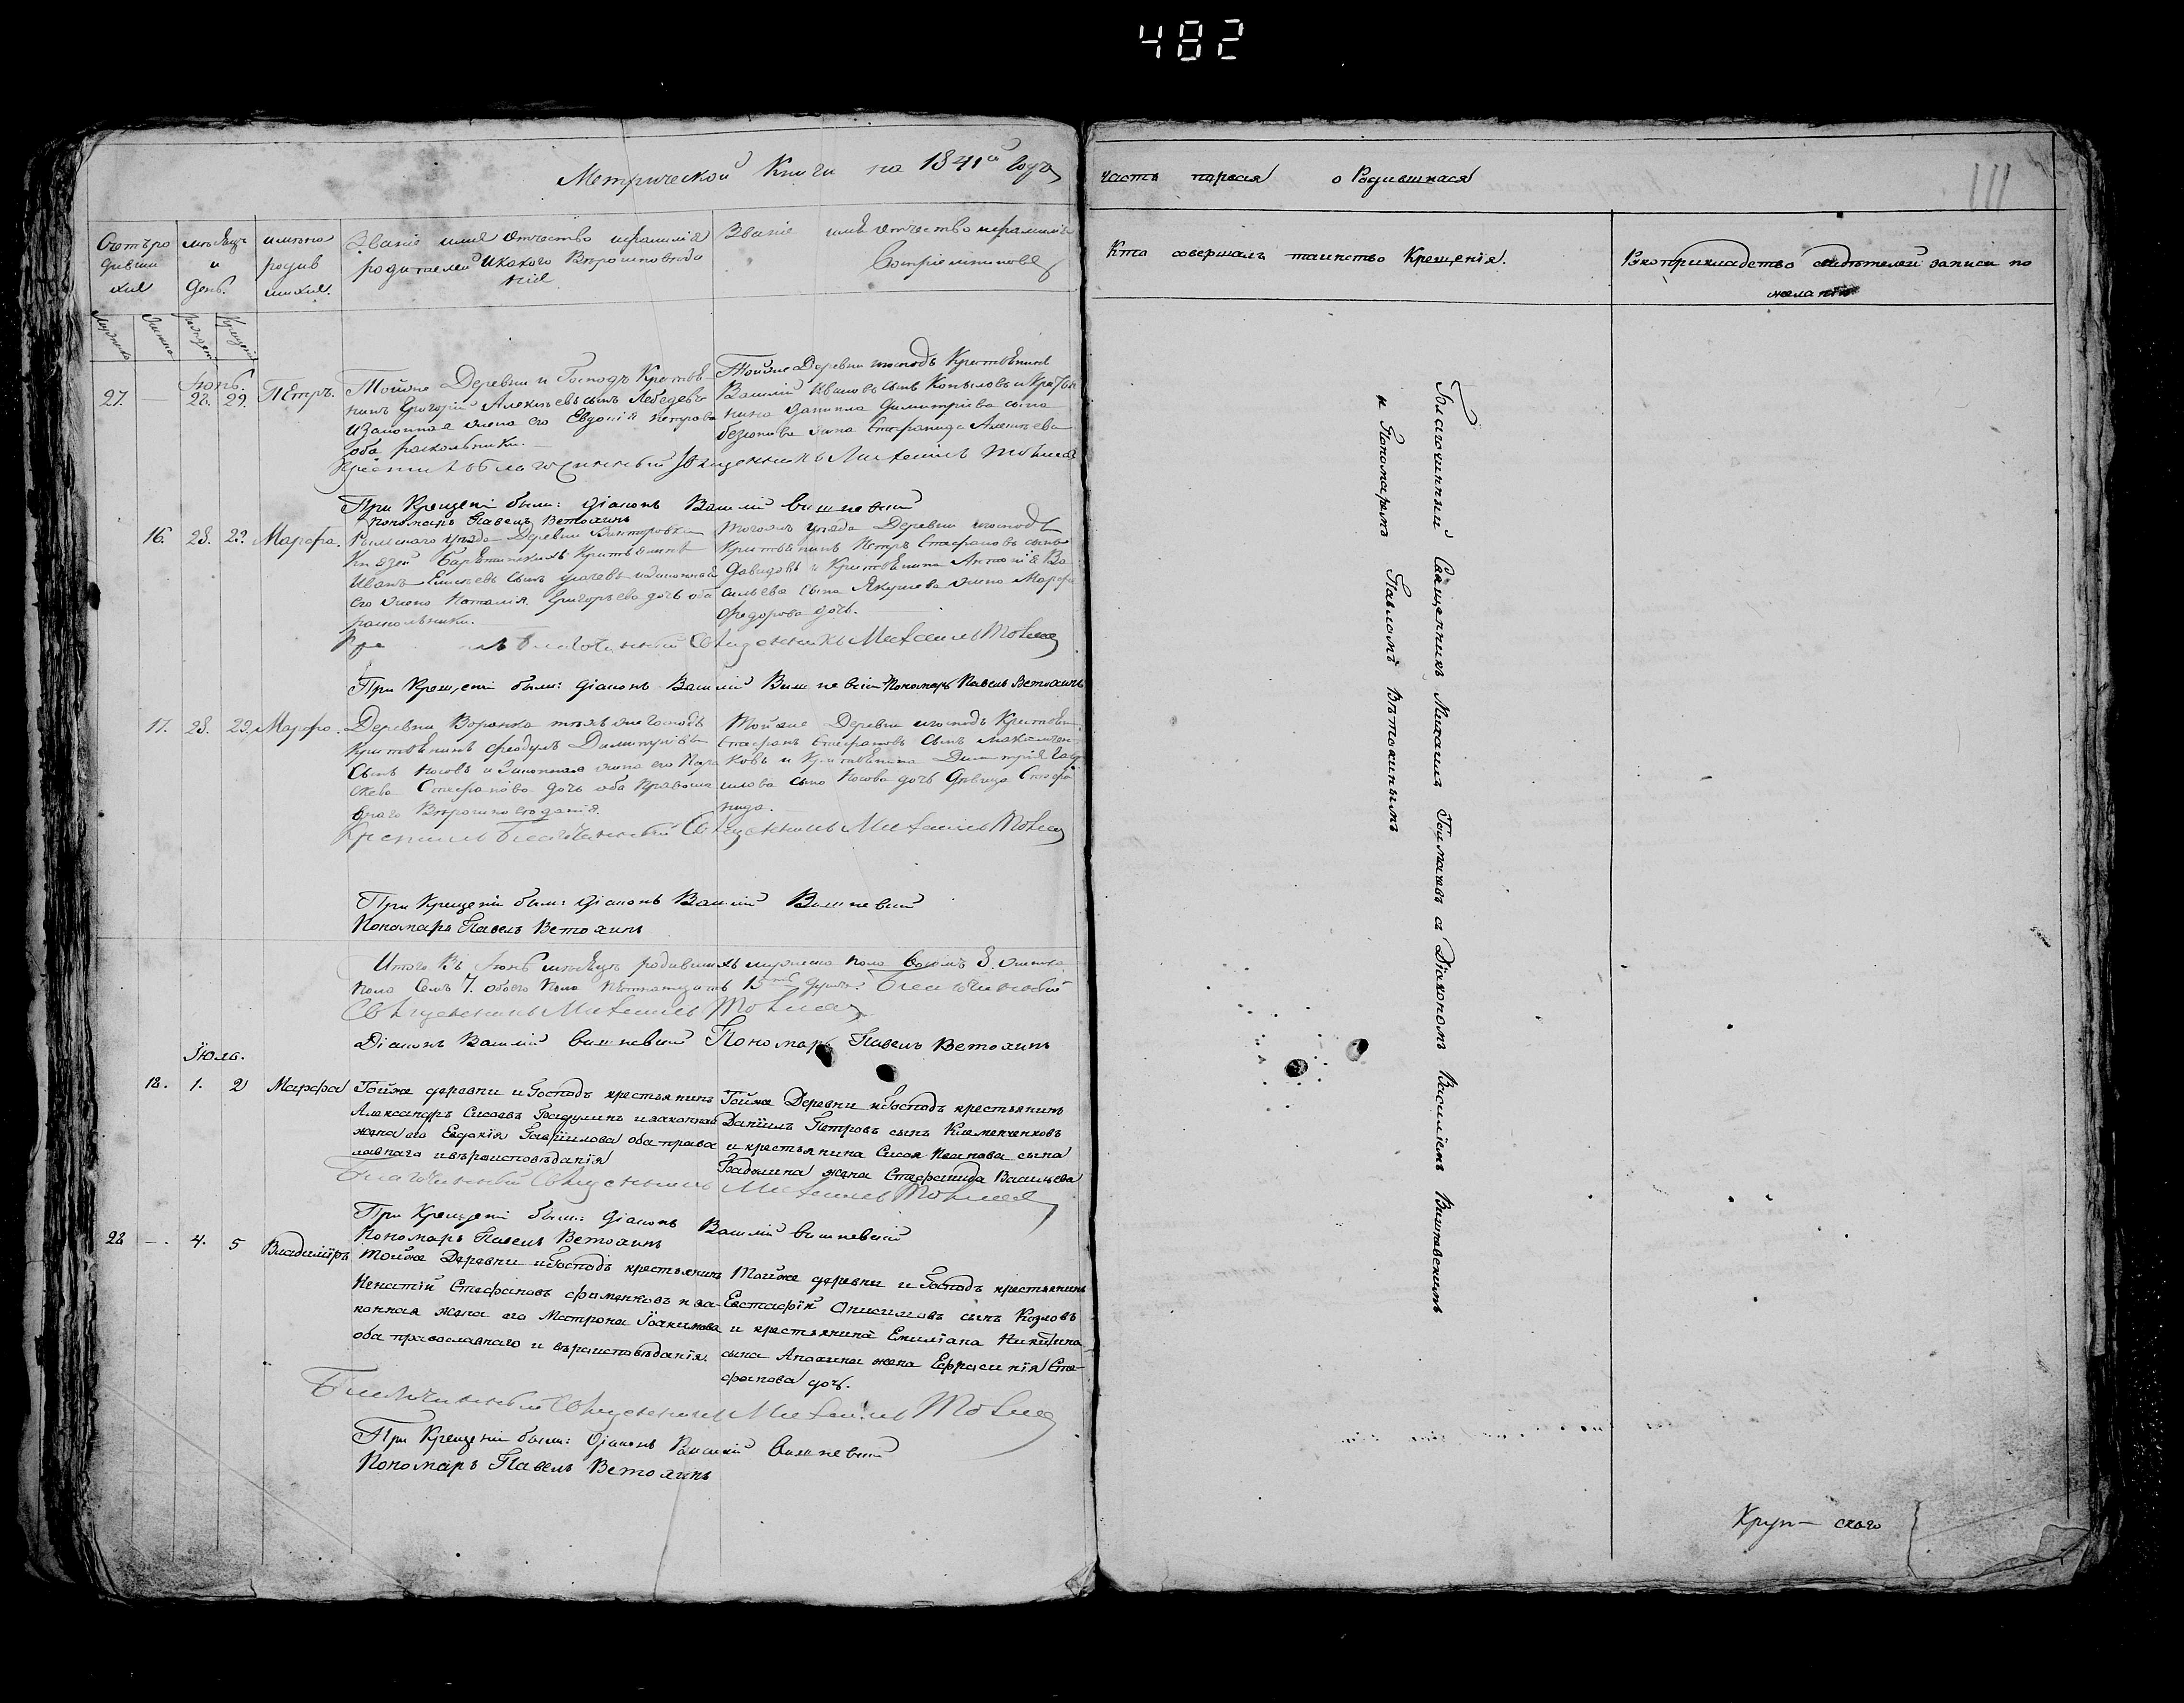 482
Метрической Книги на 1841й Годъ
часть первая о Родившихся
111
Счетъ ро
дивши
хся
мѣсяцъ
и
день.
имена
родив
шихся.
Званіе имя отчество и фамилія
родителей и какого Вѣроисповѣда
нія
Званіе имя отчество и фамилія
Воспріемниковъ
Кто совершалъ таинство Крещенія.
Рукоприкладство свидѣтелей записи по
желанію
Іюнь.
27. — 28. 29. Петръ.
Тойже Деревни и Господъ Крестья
нинъ Григорій Алексѣевъ сынъ Лебедевъ
и Законная жена его Евдокія Петрова
оба раскольники.
Тойже Деревни и господъ Крестьянинъ
Василій Ивановъ сынъ Копыловъ и Крестья
нина Данила Димитріева сына
жена Стефанида Алексѣева
Крестилъ благочинный Священникъ Михаилъ
При Крещеніи были: Діаконъ Василій Вишневскій
Пономарь Павелъ Ветохинъ
16. 28. 29. Марфа.
уѣзда Деревни
Князей Крестьянинъ
Иванъ сынъ и законная
его жена Наталія Григорьева дочь оба
раскольники.
Тогожъ уѣзда Деревни и господъ
Крестьянинъ Петръ Стефановъ сынъ
Давидовъ и Крестьянина Антонія Ва
сильева сына Якушева жена Марфа
Федорова дочь.
Благочинный Священникъ Михаилъ
При Крещеніи были: Діаконъ Василій Вишневскій Пономарь Павелъ Ветохинъ
17. 28. 29. Марфа.
Деревни Воронка тѣхъ же Господъ
Крестьянинъ Феодулъ Димитріевъ
Сынъ Носовъ и Законная жена его Пара
скева Стефанова дочь оба Правосла
внаго Вѣроисповѣданія.
Тойже Деревни и господъ Крестьянинъ
Стефанъ Стефановъ Сынъ
ковъ и Крестьянина Димитрія Гаври
илова сына Носова дочь Дѣвица Стефа
нида.
Крестилъ Благочинный Священникъ Михаилъ
При Крещеніи были: Діаконъ Василій Вишневскій
Пономарь Павелъ Ветохинъ
Итого Въ Іюнѣ мѣсяцѣ родившихся мужеска пола Восемь 8. женска
пола Семь 7. обоего пола пятнатцать 15 душъ. Благочинный
Священникъ Михаилъ
Діаконъ Василій Вишневскій Пономарь Павелъ Ветохинъ
Іюль.
18. 1. 2 Марфа
Тойже деревни и Господъ крестьянинъ
Александръ Сисоевъ и законная
жена его Евдокія Гавріилова оба право
славнаго и вѣроисповѣданія
Тойже Деревни и Господъ крестьянинъ
Даніилъ Петровъ сынъ Клеменченковъ
и крестьянина Сисоя Иванова сына
жена Стефанида Васильева
Благочинный Священникъ Михаилъ
При Крещеніи были: Діаконъ Василій Вишневскій
Пономарь Павелъ Ветохинъ
28 — 4. 5 Владиміръ
Тойже Деревни и Господъ крестьянинъ
Стефановъ Фоменковъ и за-
конная жена его Матрона Іоакимова
оба православнаго и вѣроисповѣданія.
Тойже деревни и Господъ крестьянинъ
Евстафій Онисимовъ сынъ Козловъ
и крестьянина Емиліана Никитина
сына Апохина жена Ефросинія Сте-
фанова дочь.
Благочинный Священникъ Михаилъ
При Крещеніи были: Діаконъ Василій Вишневскій
Пономарь Павелъ Ветохинъ
Благочинный Священникъ Михаилъ съ Діакономъ Василіемъ Вишневскимъ
и Пономаремъ Павломъ Ветохинымъ
Круп— скаго